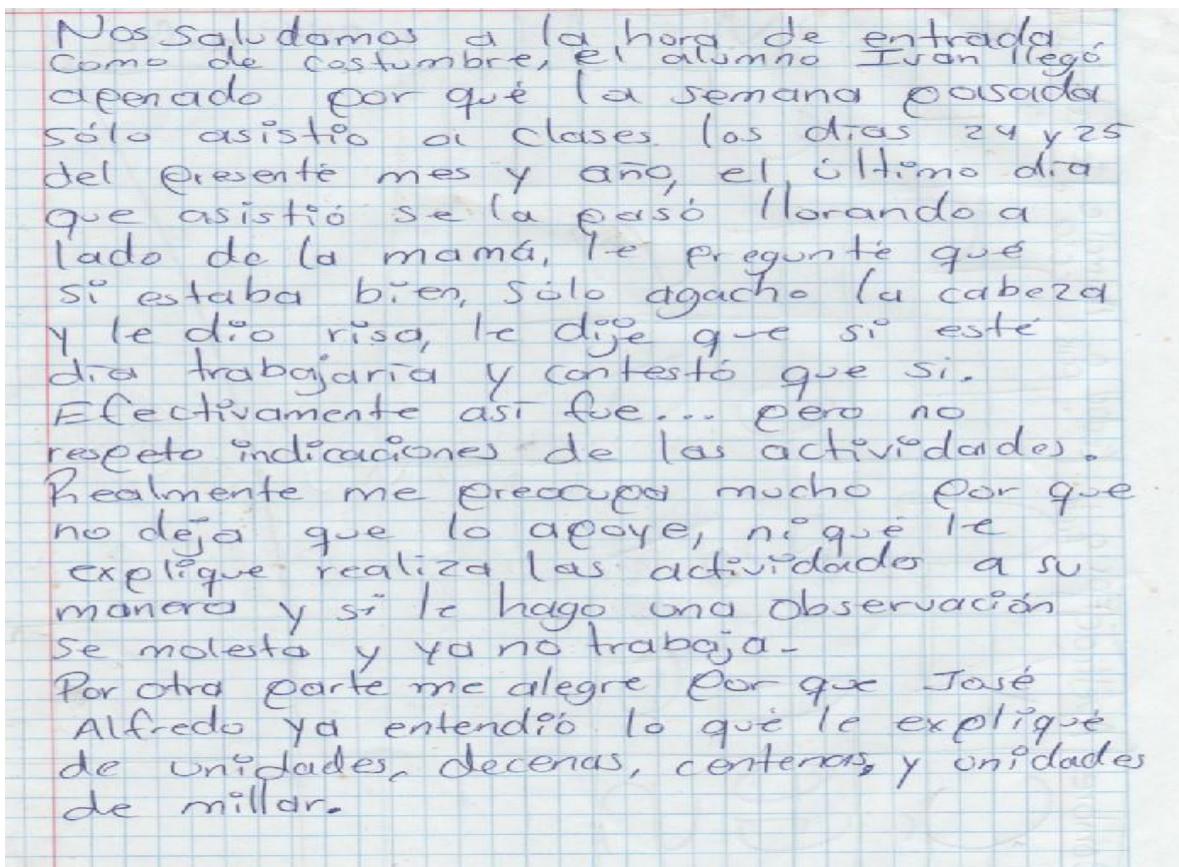 Nos saludamos a la hora de entrada
como de costumbre, el alumno Iván llegó
apenado por qué la semana pasada
sólo asistio a clases los dias 24 y 25
del presenté mes y año, el último día
que asistió se la pasó llorando a
lado de la mamá, le pregunté qué
si estaba bien, sólo agacho la cabeza
y le dio risa, le dije que si esté
día trabajaría y contestó que si.
Efectivamente así fue... pero no
respeto indicaciones de las actividades.
Realmente me preocupa mucho por que
no deja que lo apoye, ni qué le
explique realiza las actividades a su
manera y si le hago una observación
se molesta y ya no trabaja.
Por otra parte me alegre por que José
Alfredo ya entendió lo qué le expliqué
de unidades, decenas, centenas, y unidades
de millar.